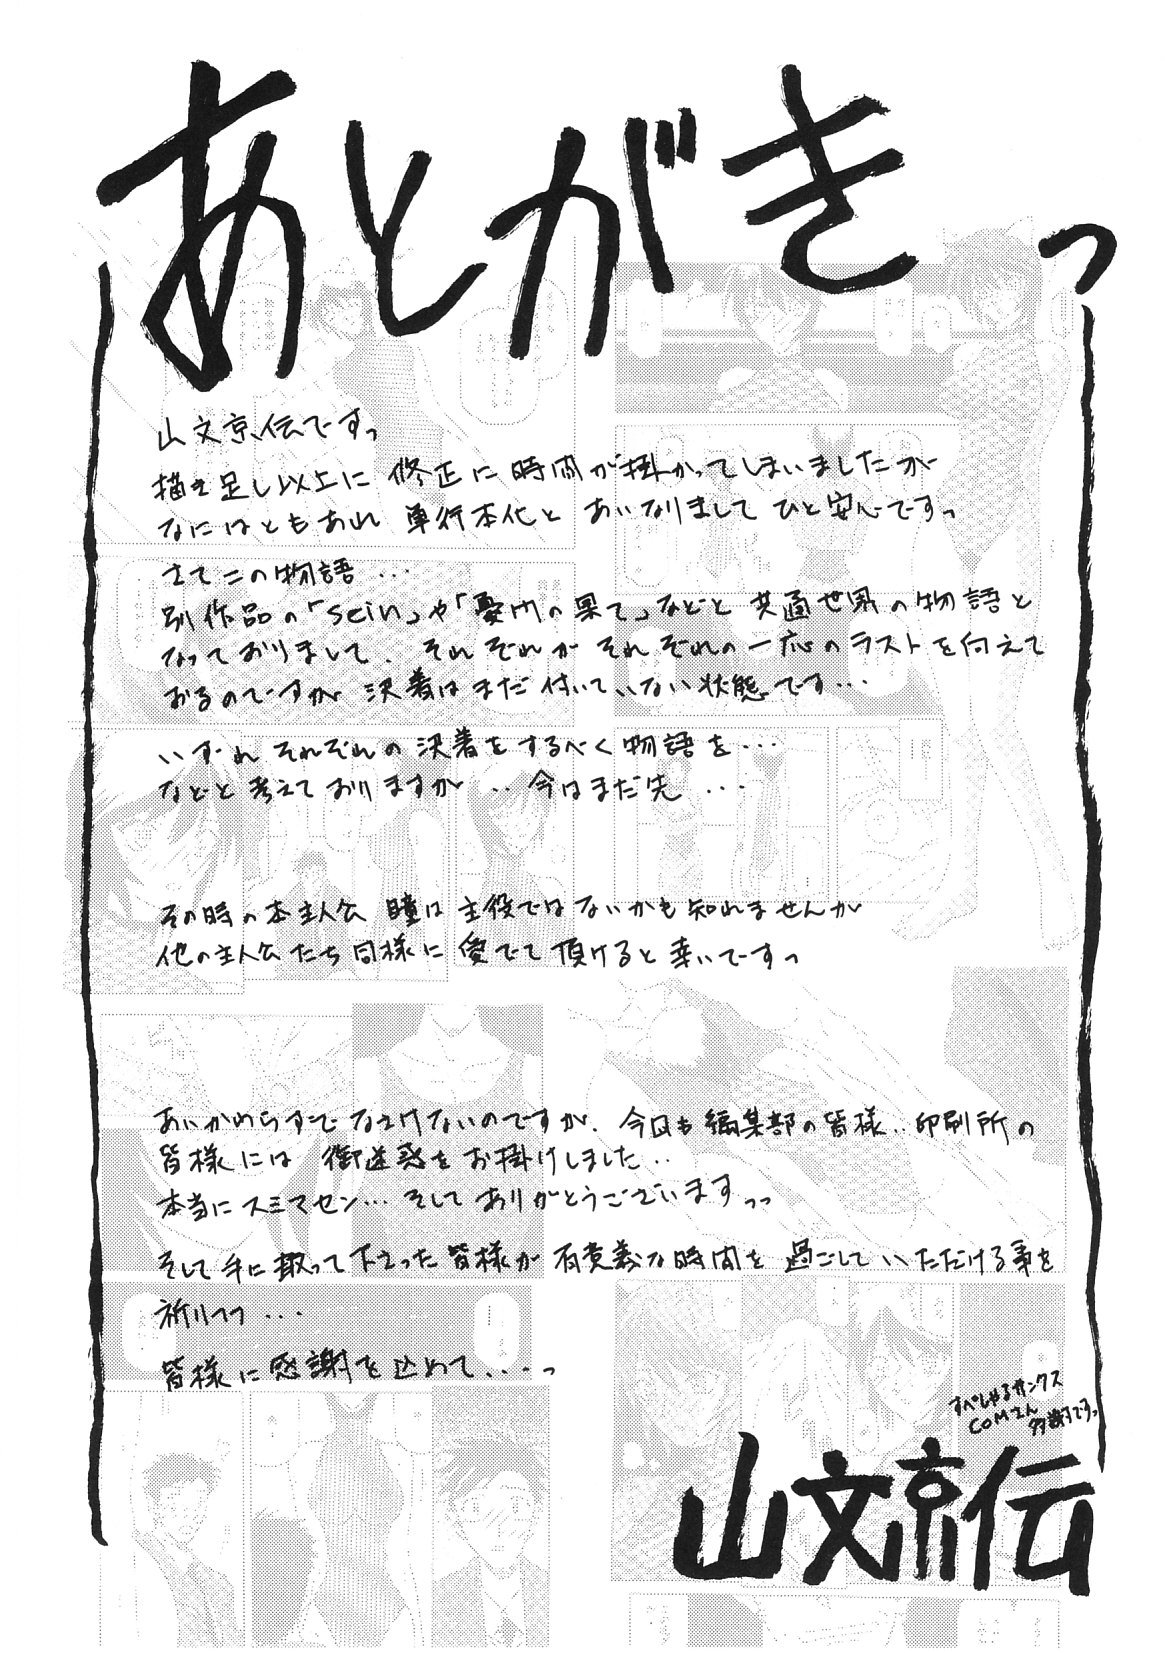 あとがきっ
山文京伝ですっ
描き足し以上に 修正に時間が掛かってしまいましたが
なにはともあれ 単行本化と あいなりまして ひと安心ですっ
さてこの物語・・・
別作品の「sein」や「憂囚の果て」などと 共通世界の物語と
なっておりまして、それぞれが それぞれの一応のラストを向えて
おるのですが 決着はまだ付いていない状態です・・・
いずれ それぞれの決着をするべく物語を・・・
などと 考えておりますが ・・今はまだ先 ・・・
その時の本主人公 瞳は 主役ではないかも知れませんが
他の主人公たち同様に 愛でて頂けると幸いですっ
あいかわらずで なさけないのですが、今回も編集部の皆様・・印刷所の
皆様には 御迷惑をお掛けしました・・
本当にスミマセン・・・そしてありがとうございますっっ
そして手に取って下さった皆様が 有意義な時間を 過ごして いただける事を
祈りつつ・・・
皆様に感謝を込めて・・・っ
すぺしゃるサンクス
COMさん
多謝ですっ
山文京伝